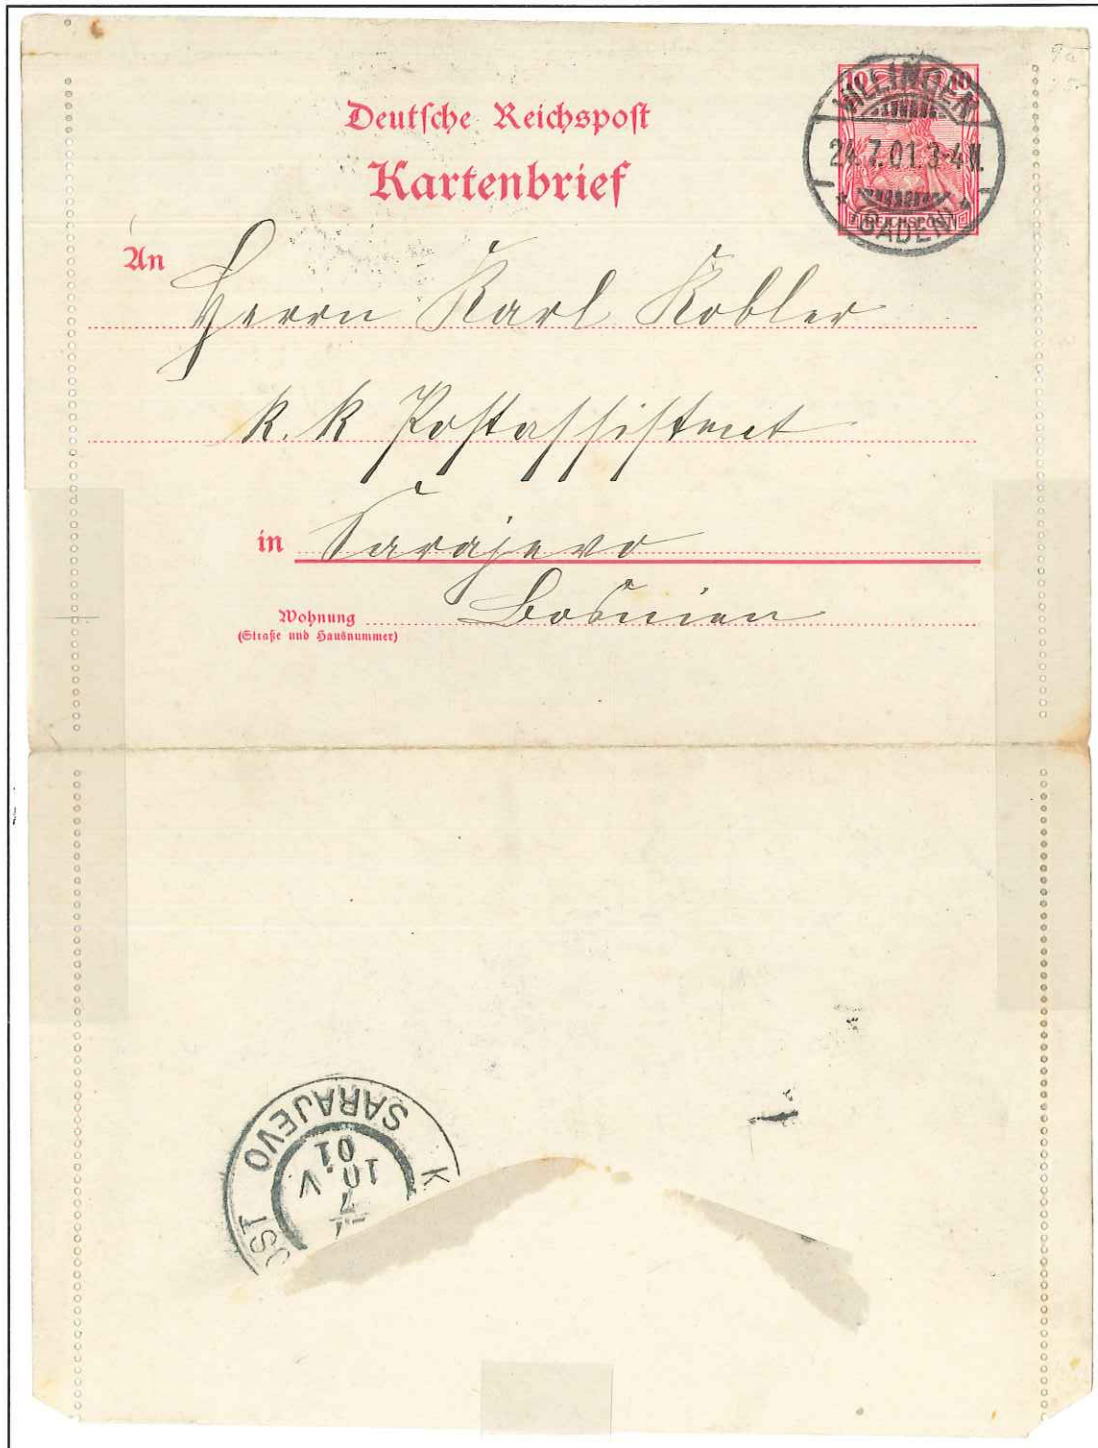 Deutsche Reichspost
Kartenbrief
10
VILLINGEN
24.7.01.3-4N.
* (BADEN) *
REICHSPOST
An Herrn Karl Kobler
k. k Postassistent
in Sarajevo
Wohnung Bosnien
(Straße und Hausnummer)
SARAJEVO
7
10 V.
01